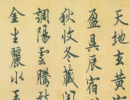 天地玄黄
盈昃辰宿
秋收冬藏閏
調陽雲騰
金生麗水